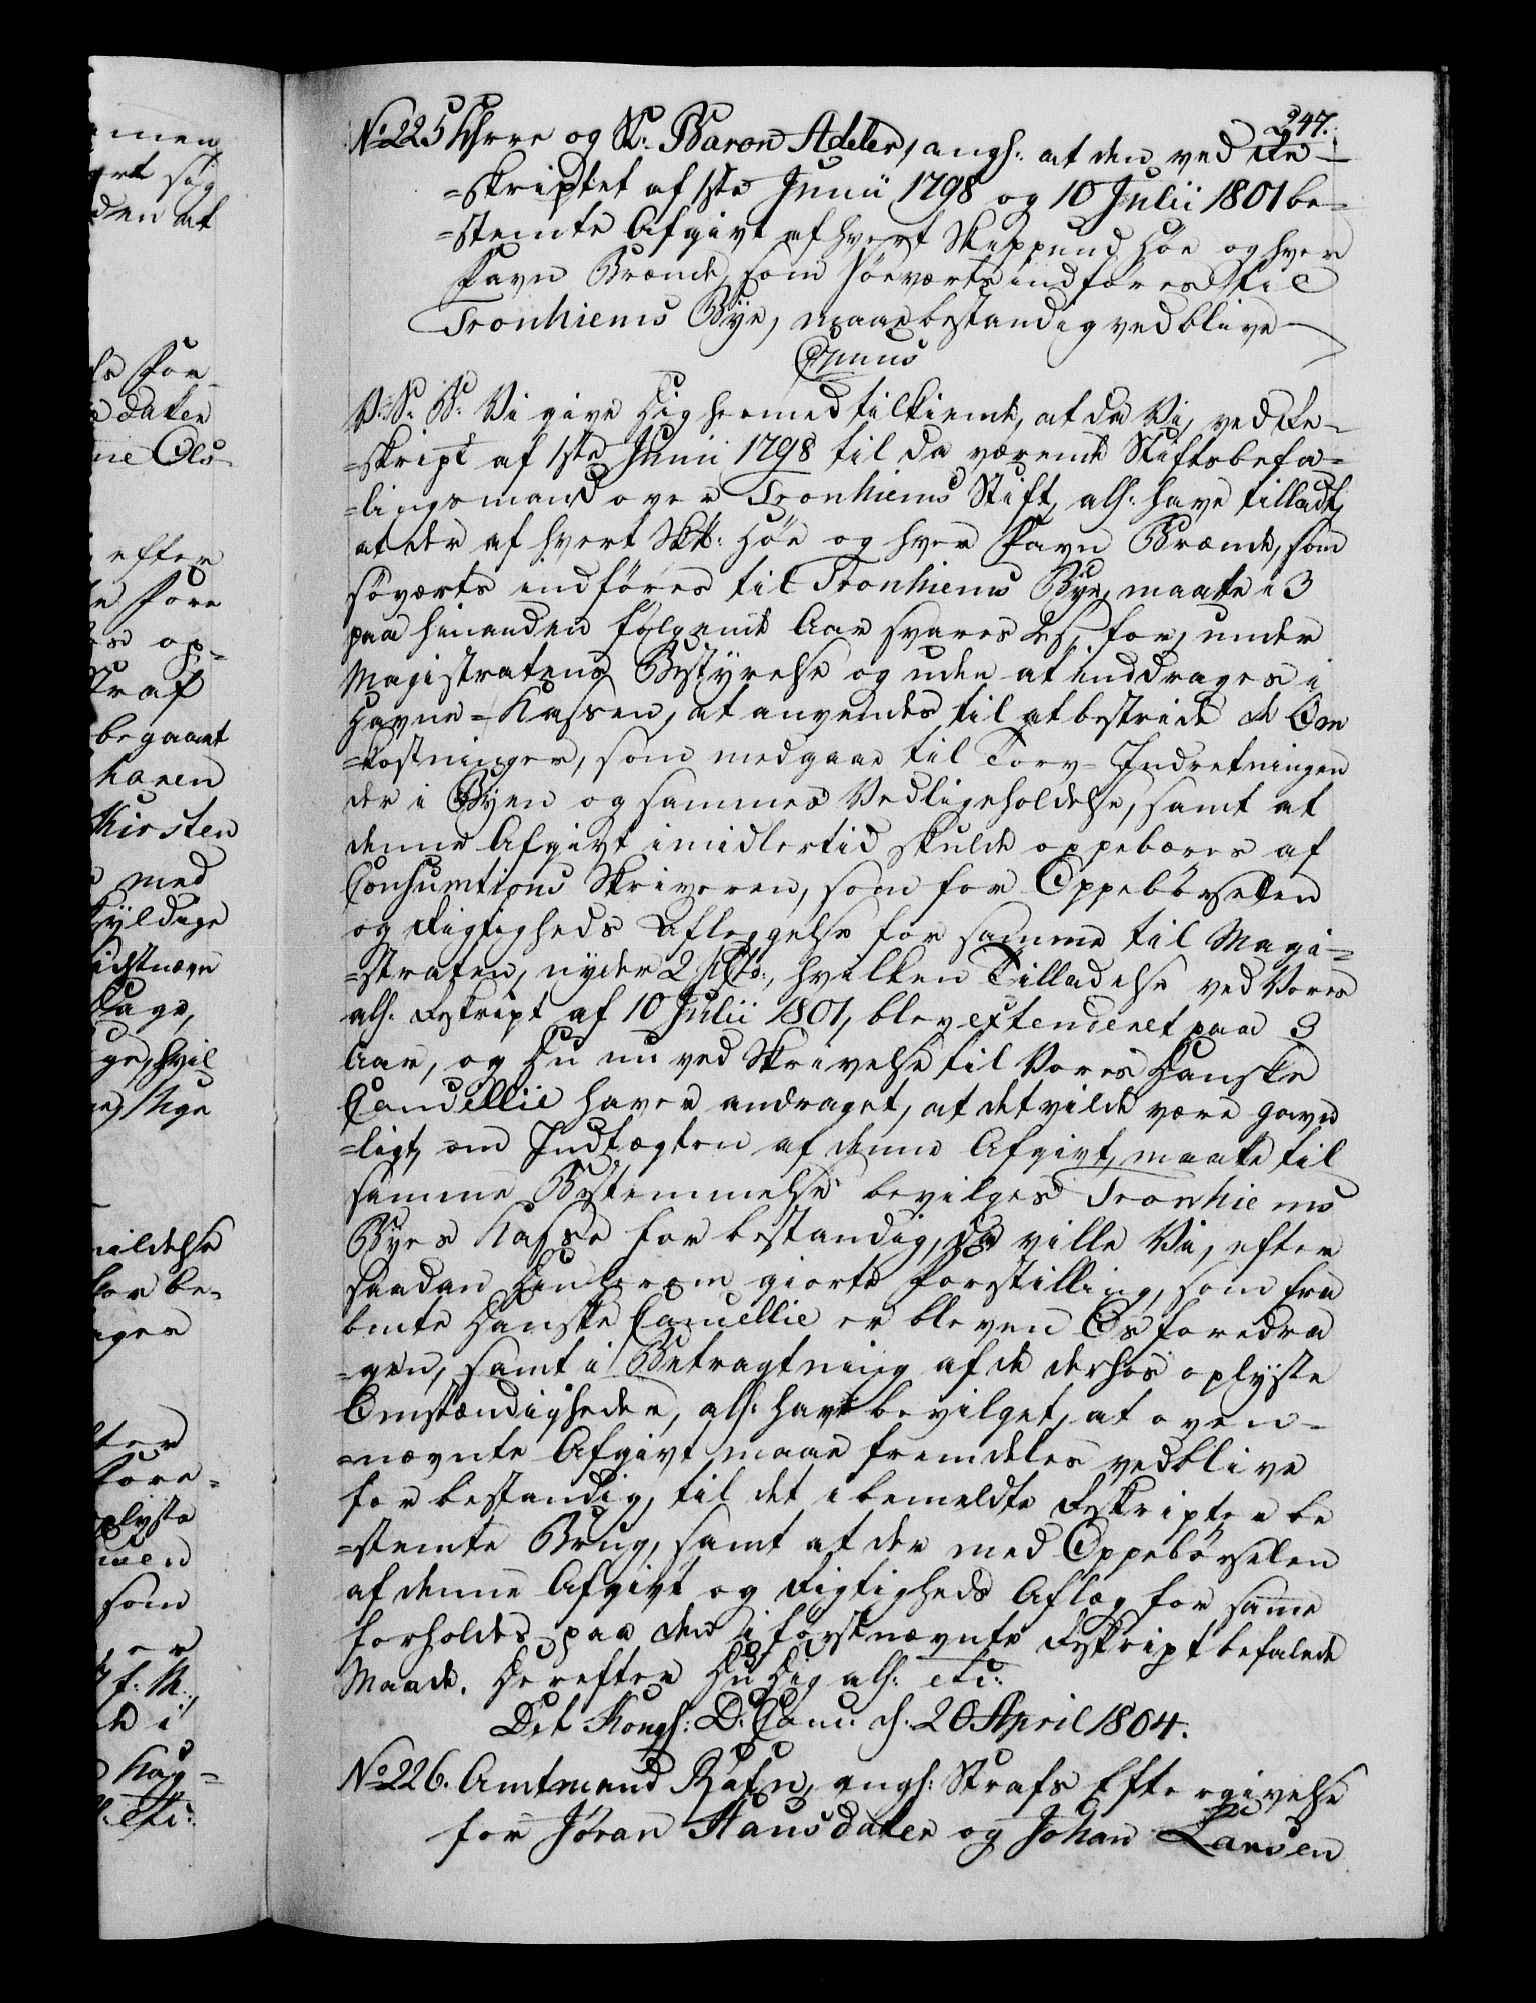 247.
No 225 Hrr og St: Baron Adeler, angs: at den ved Re-
=skriptet af 1ste Junii 1798 og 10 Julii 1801 be-
=stemte Afgivt af hvert Skippund Höe og hver
Favn Brænde, som söeværts indföres til
Tronhiems Bye, maae bestandig vedblive
V. S. B. Vi give Dig hermed tilkiende, at da Vi, ved Re-
=skript af 1ste Junii 1798 til da værende Stiftsbefa=
=lingsmand over Tronhiems Stift, als: have tilladt,
at der af hvert Skt: Höe og hver Favn Brænde, som
söværts indföres til Tronhiems Bye, maatte i 3
paa hinanden fölgende Aar svares 2 s, for, under
Magistratens Bestyrelse og uden at inddrages i
Havne=Kassen, at anvendes til at bestride de Om
=kostninger, som medgaae til Torv-Indretningen
der i Byen og sammes Vedligeholdelse, samt at
denne Afgivt imidlertid skulde oppebæres af
Consumtions Skriveren, som for Oppebörselen
og Rigtigheds Aflæggelse for samme til Magi=
=straten, nyder 2 pCto:, hvilken Tilladelse ved Vores
als: Reskript af 10 Julii 1801, blev extenderet paa 3
Aar, og Du nu ved Skrivelse til Vores Danske
Cancellie haver andraget, at det vilde være gavn
=ligt, om Indtægten af denne Afgivt, maatte til
samme Bestemmelse bevilges Tronhiems
Byes Kasse for bestandig, da ville Vi, efter
saadan Din herom giorte Forestilling, som fra
bmte Danske Cancellie er bleven Os foredra
=gen, samt i Betragtning af de derhos oplyste
Omstændigheder, als: have bevilget, at oven-
=nævnte Afgivt maae fremdeles vedblive
for bestandig, til det i bemeldte Reskripter be
=stemte Brug, samt at der med Oppebörselen
af denne Afgivt og Rigtigheds Aflæg for same
forholdes paa den i förstnævnte Reskript befalede
Maade. Derefter Du Dig als: etc:
Det Kongs: D: Canc: d: 20 April 1804.
No 226. Amtmand Rafn, angs: Strafs Eftergivelse
for Jöran Hansdatter og Johan Larsen